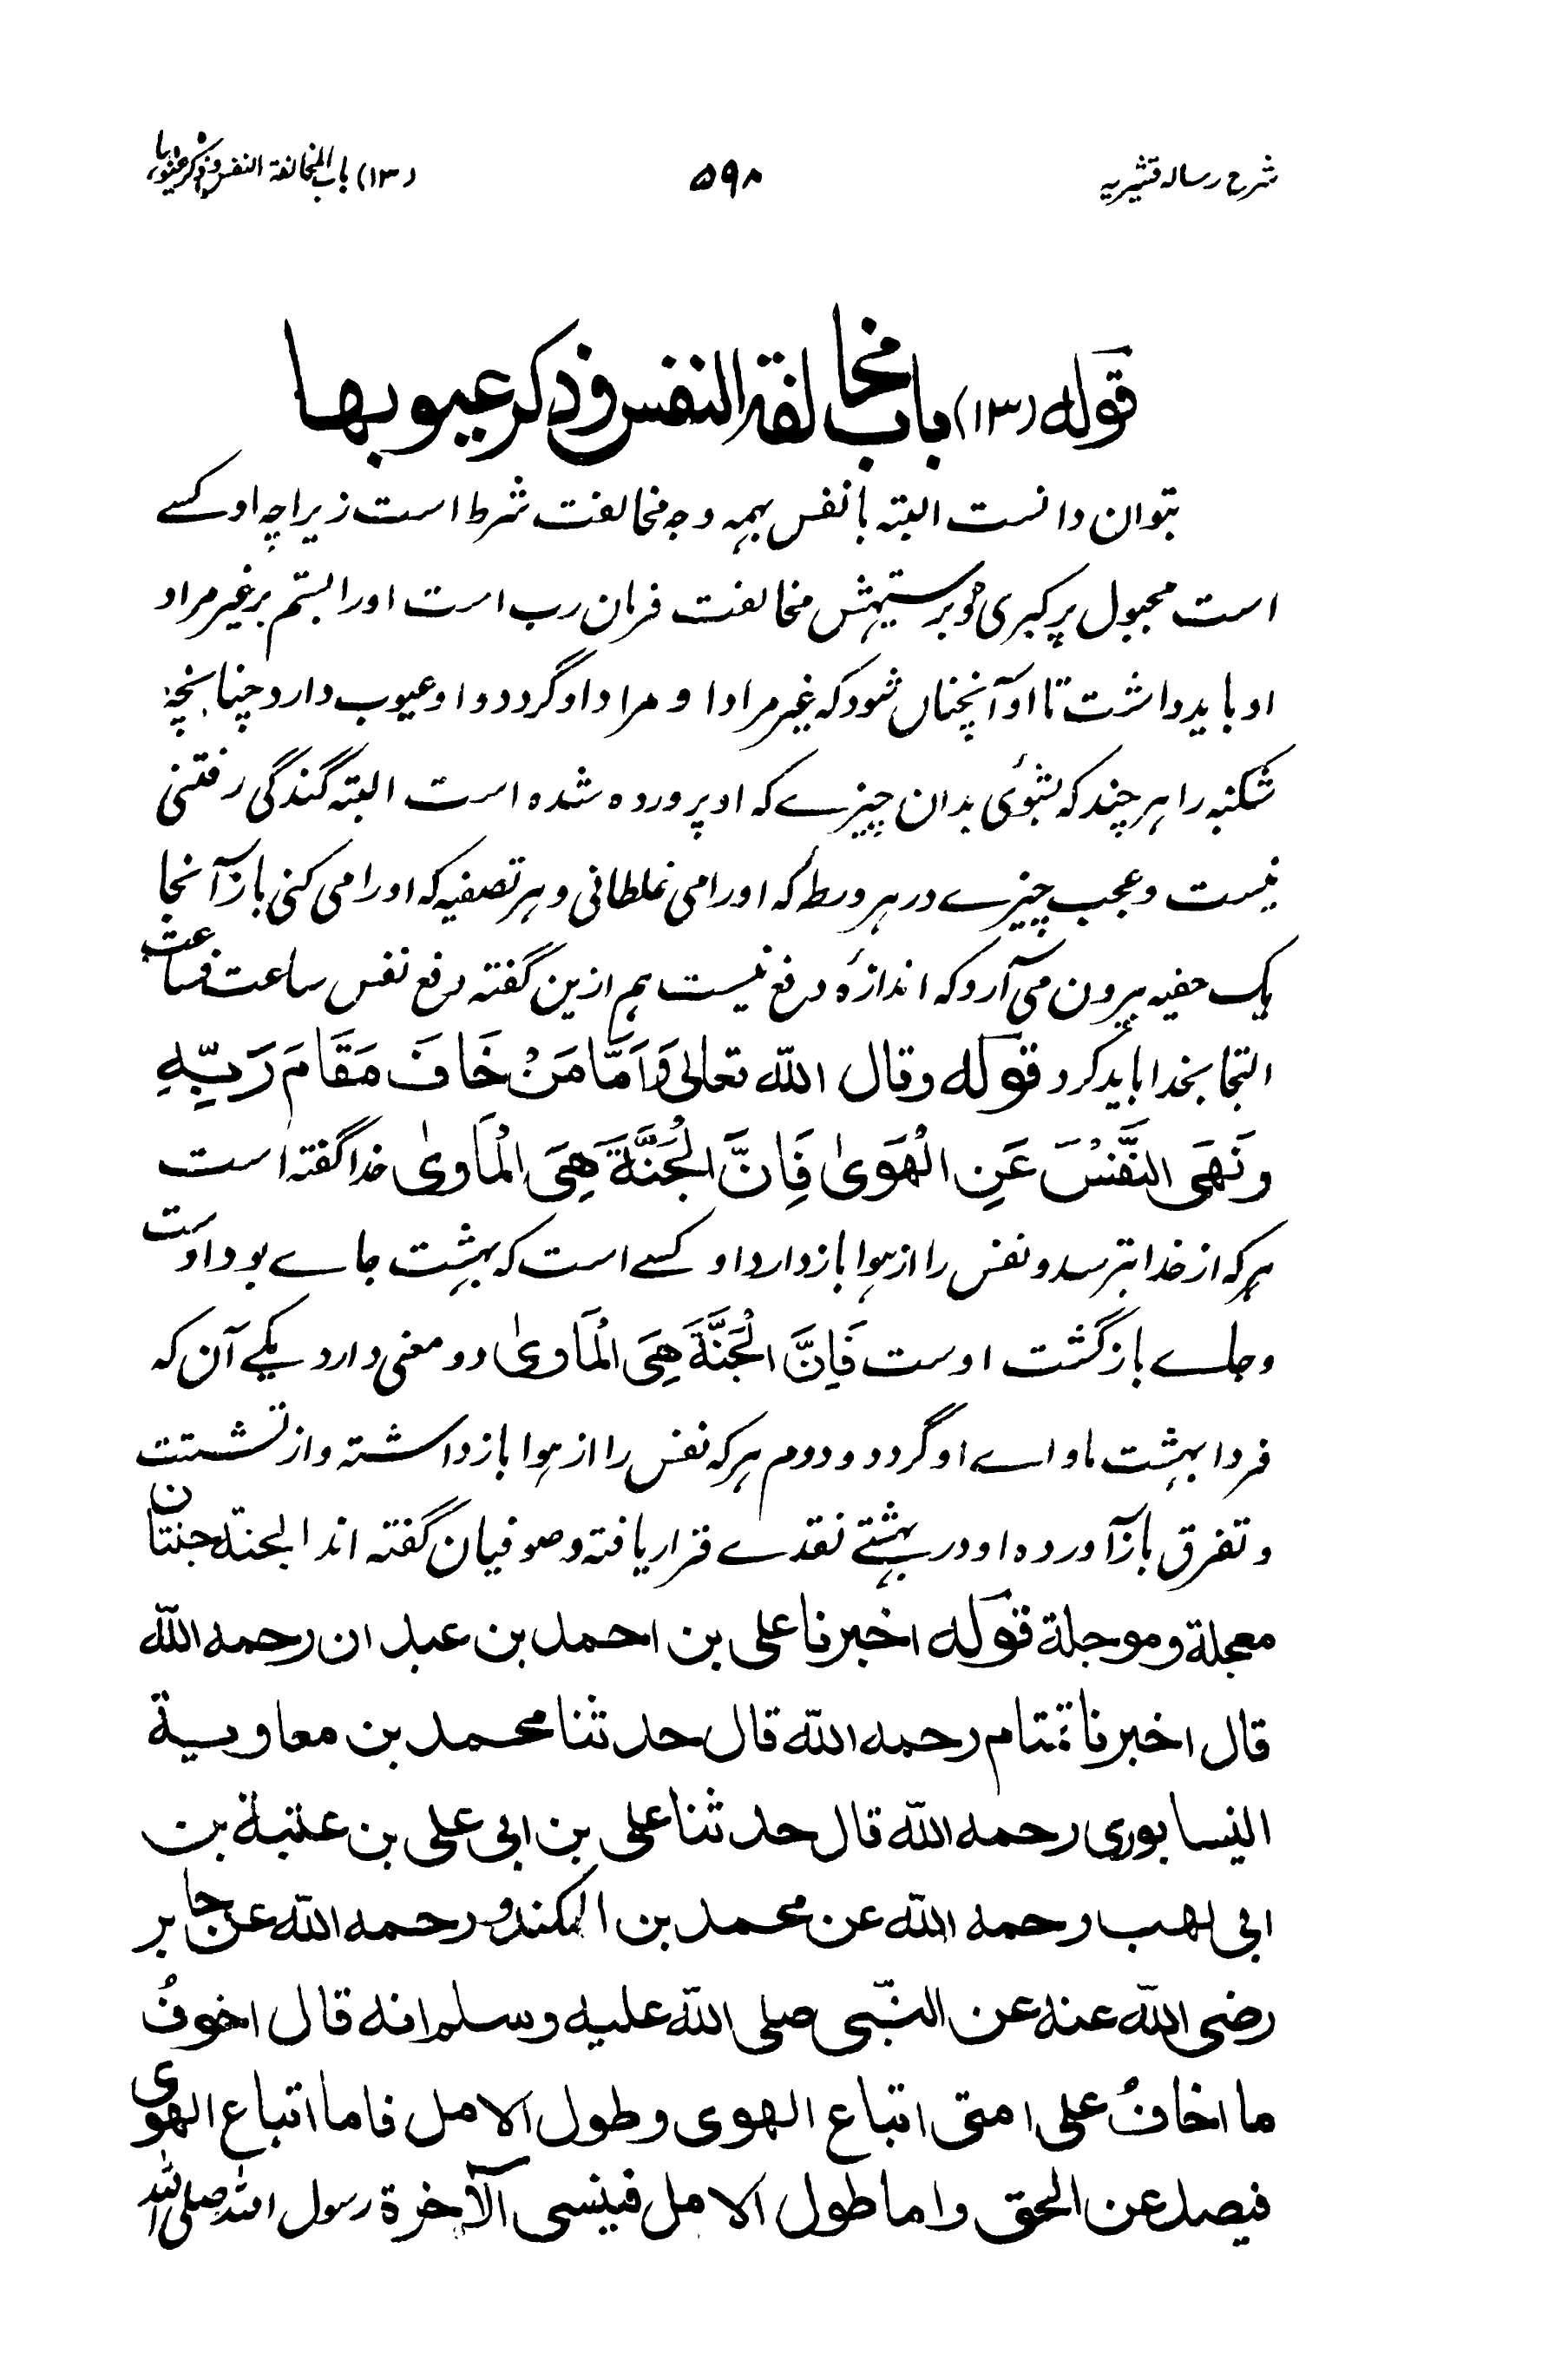 شرح رساله قشیریه ۵۹۸ (۱۳) باب المخالفة النفس و ذکر عیوبها
قوله (۱۳) باب مخالفة النفس و ذکر عیوبها
بتوان دانست البته با نفس بهمه وجه مخالفت شرط است زیراچه او کسے
است مجبول بر کبری و مخالفت فرمان رب است او را بستم بر غیر مراد
او باید داشت تا او آنچناں شود که غیر مراد او مراد او گردد و او عیوب دارد چنانچه
شکنبه را هر چند که بشوئی بدان چیزے که او پرورده شده است البته گندگی رفتنی
نیست و عجب چیزے در هر ورطه که او را می غلطانی و هر تصفیه که او را می کنی باز آنجا
یک حفیه بیرون می آرد که اندازهٔ دفع نیست هم ازین گفته دفع نفس ساعت فساعت
التجا بخدا باید کرد قوله وقال الله تعالی وَاَمَّا مَنْ خَافَ مَقَامَ رَبِّهِ
وَنَهَی النَّفْسَ عَنِ الْهَوَیٰ فَاِنَّ الْجَنَّةَ هِیَ الْمَاویٰ خدا گفته است
هر که از خدا بترسد و نفس را از هوا باز دارد او کسے است که بهشت جاے بود اوست
و جاے بازگشت اوست فَاِنَّ الْجَنَّةَ هِیَ الْمَاویٰ دو معنی دارد یکے آن که
فردا بهشت ماواے او گردد و دوم هر که نفس را از هوا باز داشته و از تشتت
و تفرق باز آورده او در بهشتے نقدے قرار یافته و صوفیان گفته اند الجنة جنتان
معجلة وموجلة قوله اخبرنا علی بن احمد بن عبدان رحمه الله
قال اخبرنا تمتام رحمه الله قال حدثنا محمد بن معاویة
النیسابوری رحمه الله قال حدثنا علی بن ابی علی بن عتبة بن
ابی لهب رحمه الله عن محمد بن المکندر رحمه الله عن جابر
رضی الله عنه عن النّبی صلی الله علیه وسلم انه قال اخوفُ
ما اخافُ علی امتی اتباع الهوی وطول الامل فاما اتباع الهوی
فیصد عن الحق واما طول الامل فینسی الآخرة رسول الله صلی الله